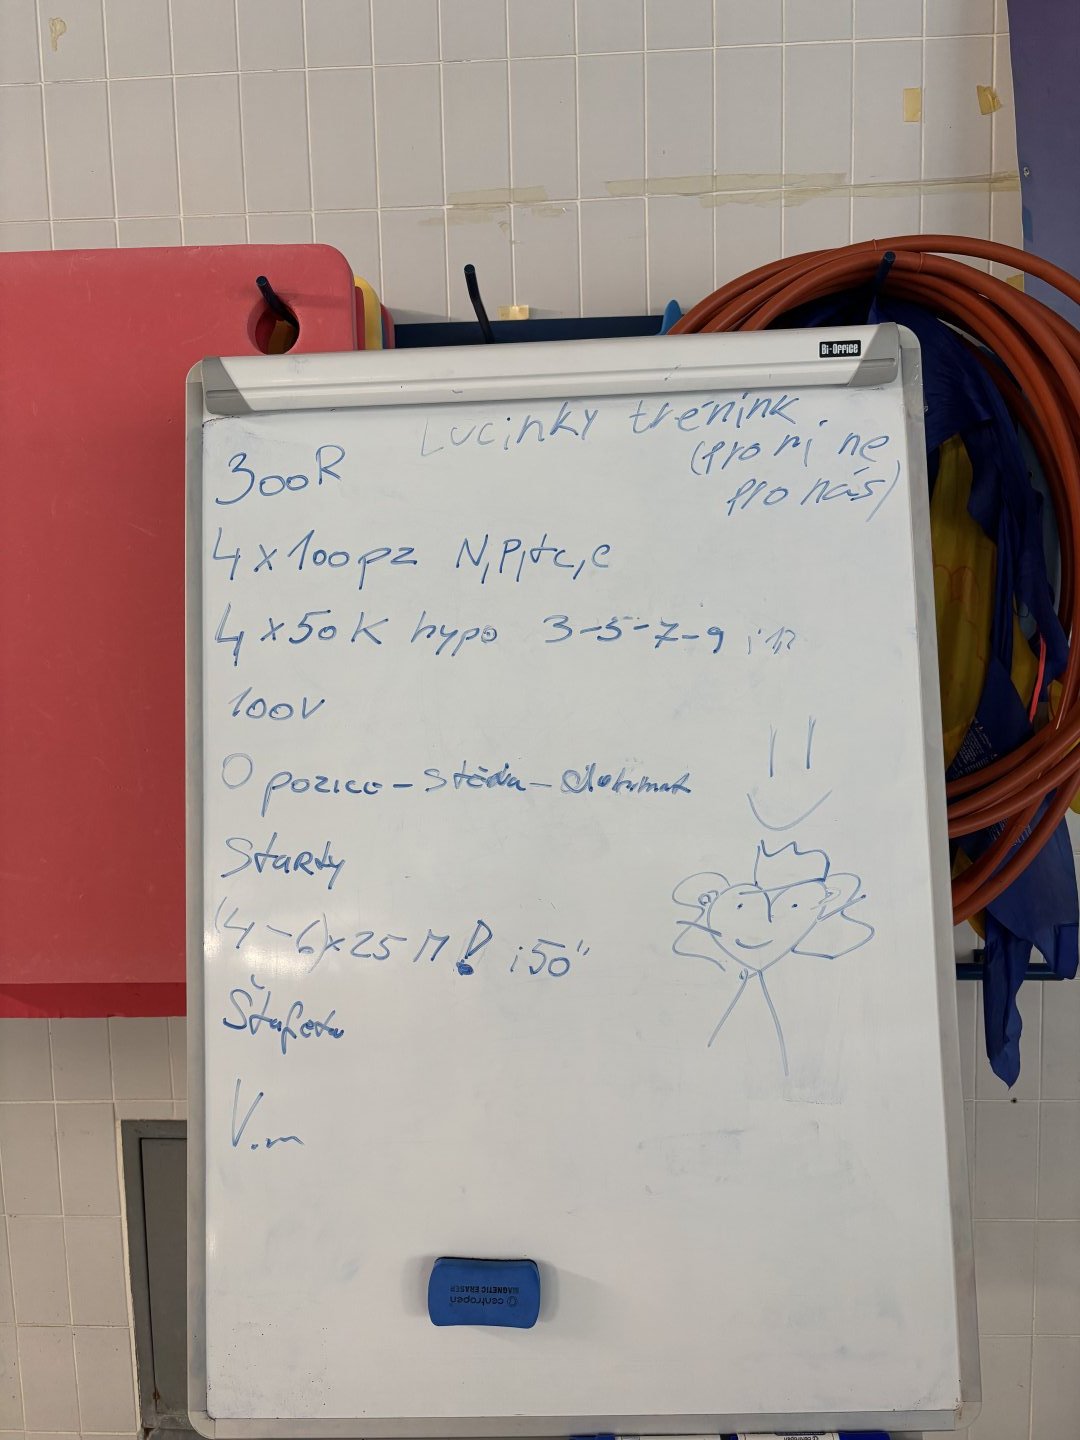 Bi-Office
Lucinky trénink
(pro ni ne
pro nás)
300R
4x100pz N,P,tc,c
4x50K hypo 3-5-7-9
100V
O pozice - stěna - dohmat
Starty
(4-6)x25 M! i50"
Štafeta
V.m
centropen
MAGNETIC ERASER